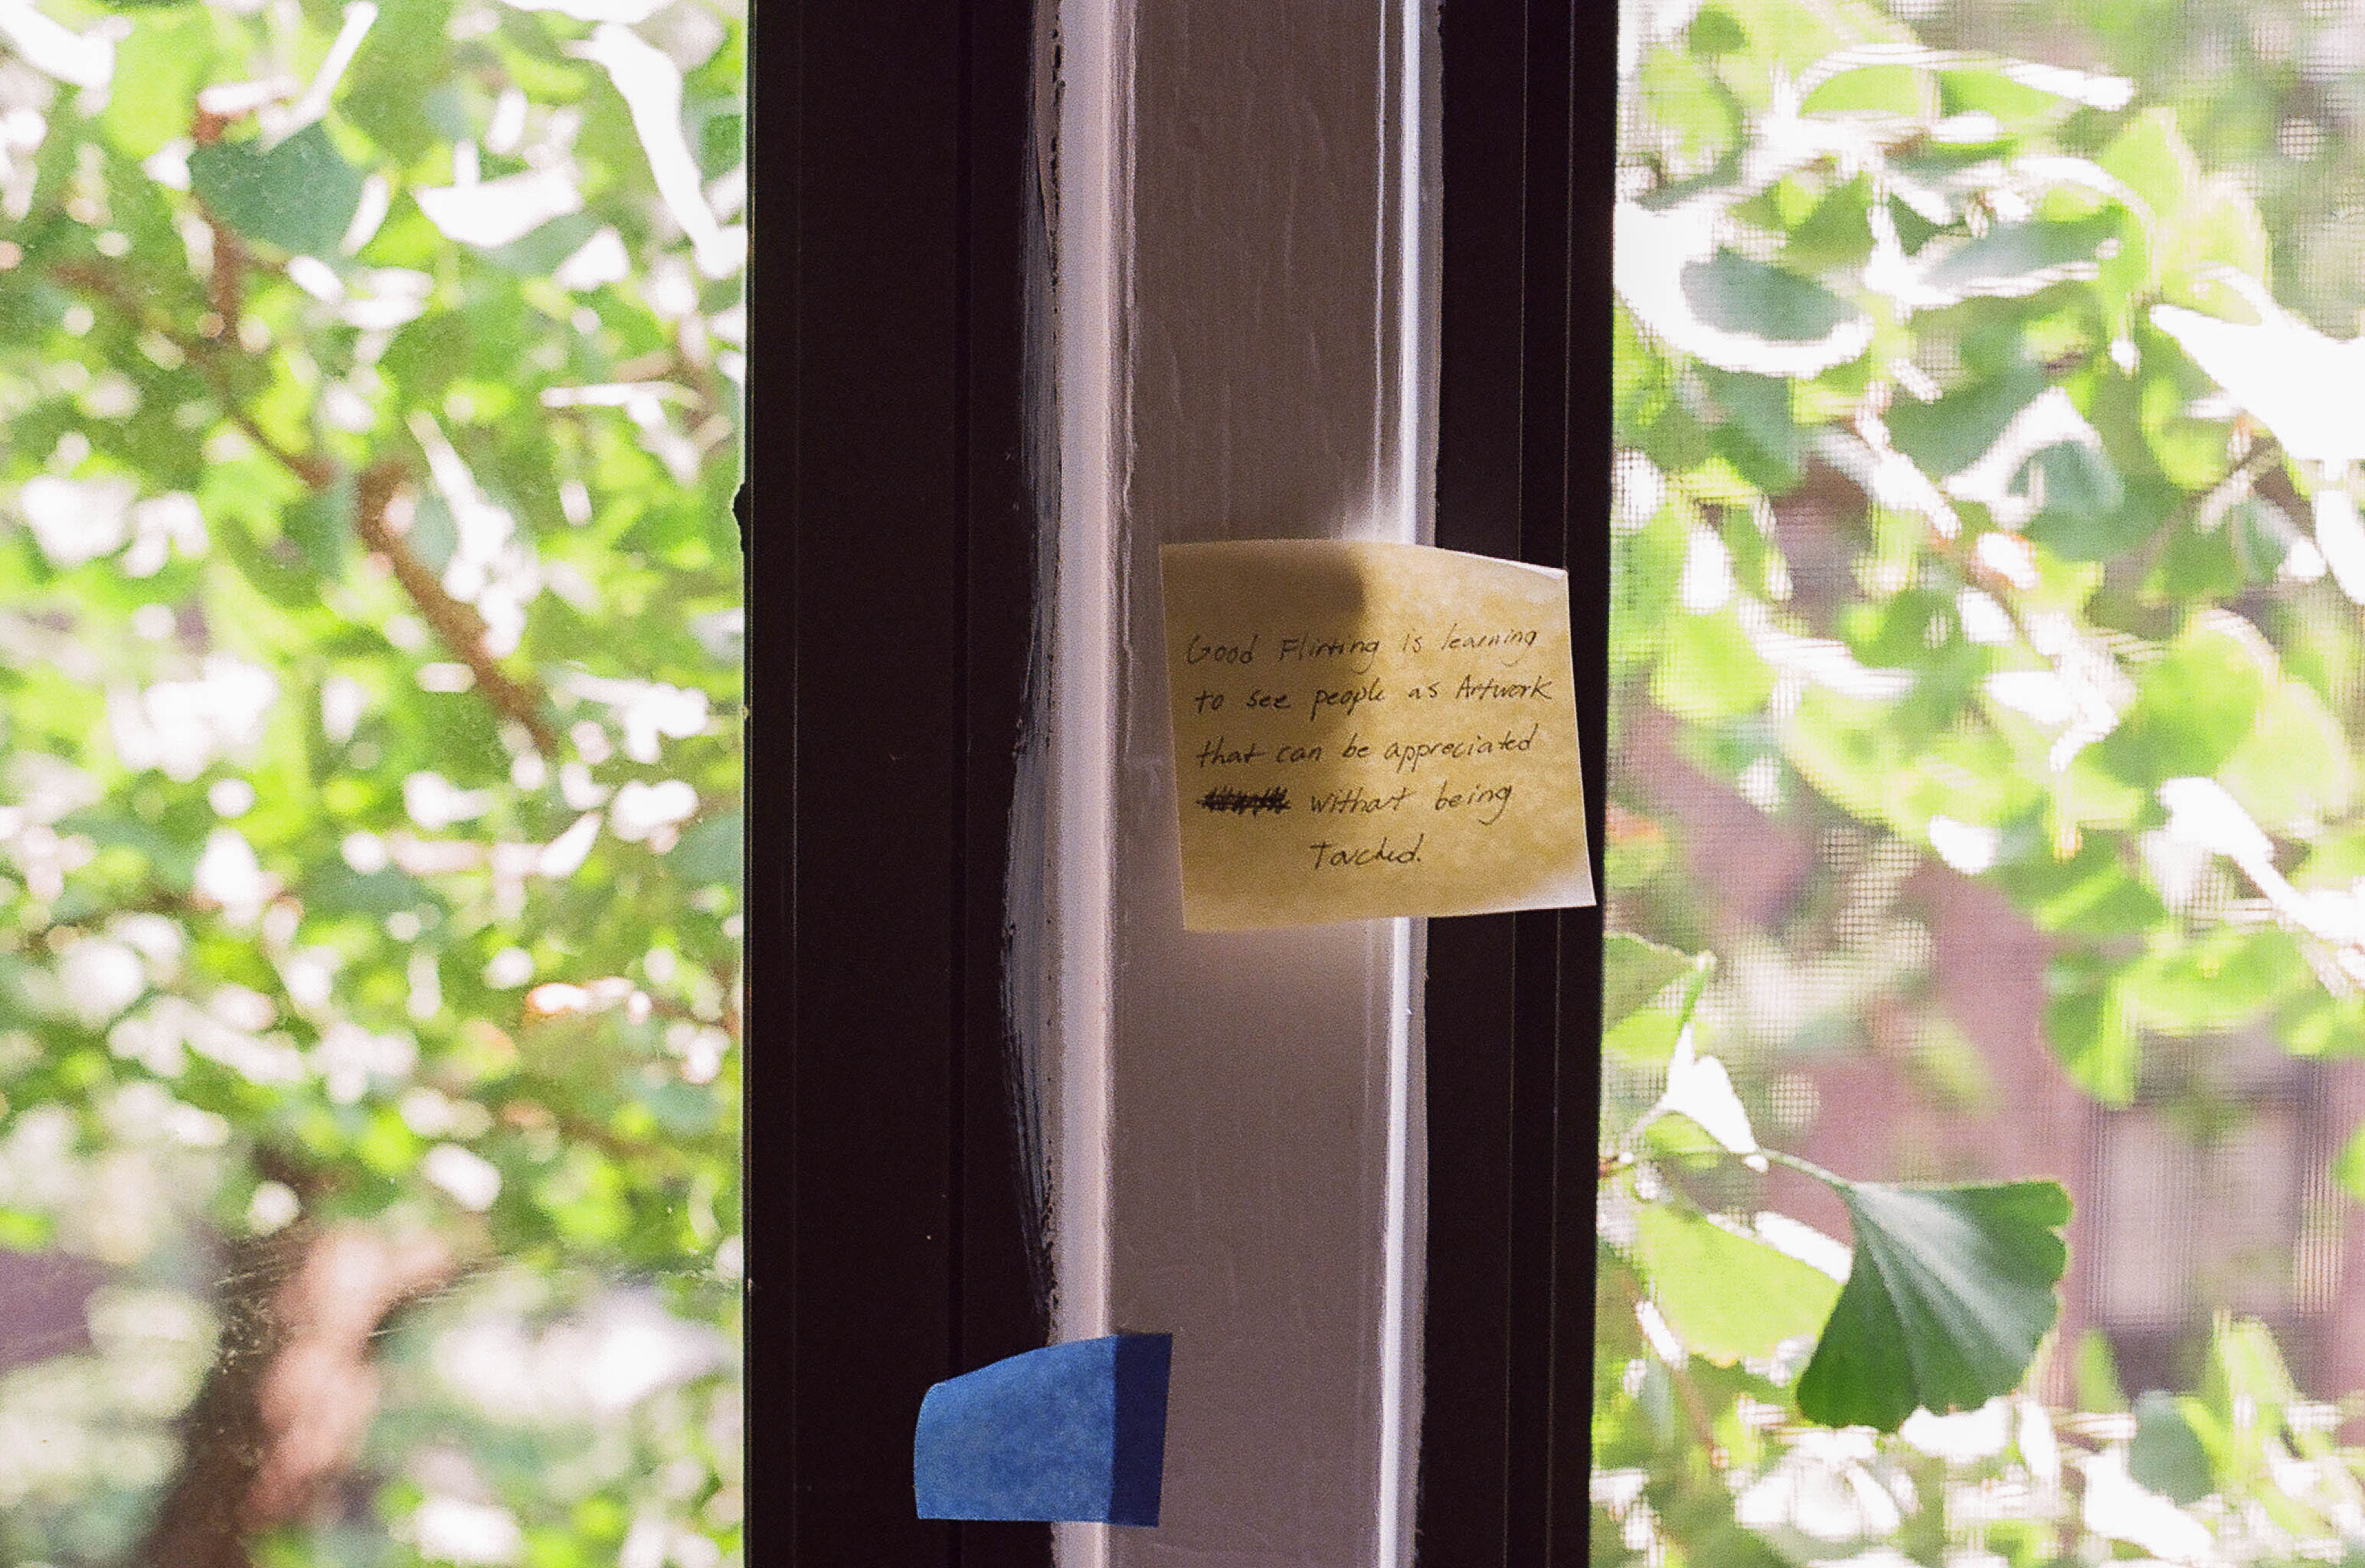 Good Flirting is learning
to see people as Artwork
that can be appreciated
without being
Touched.